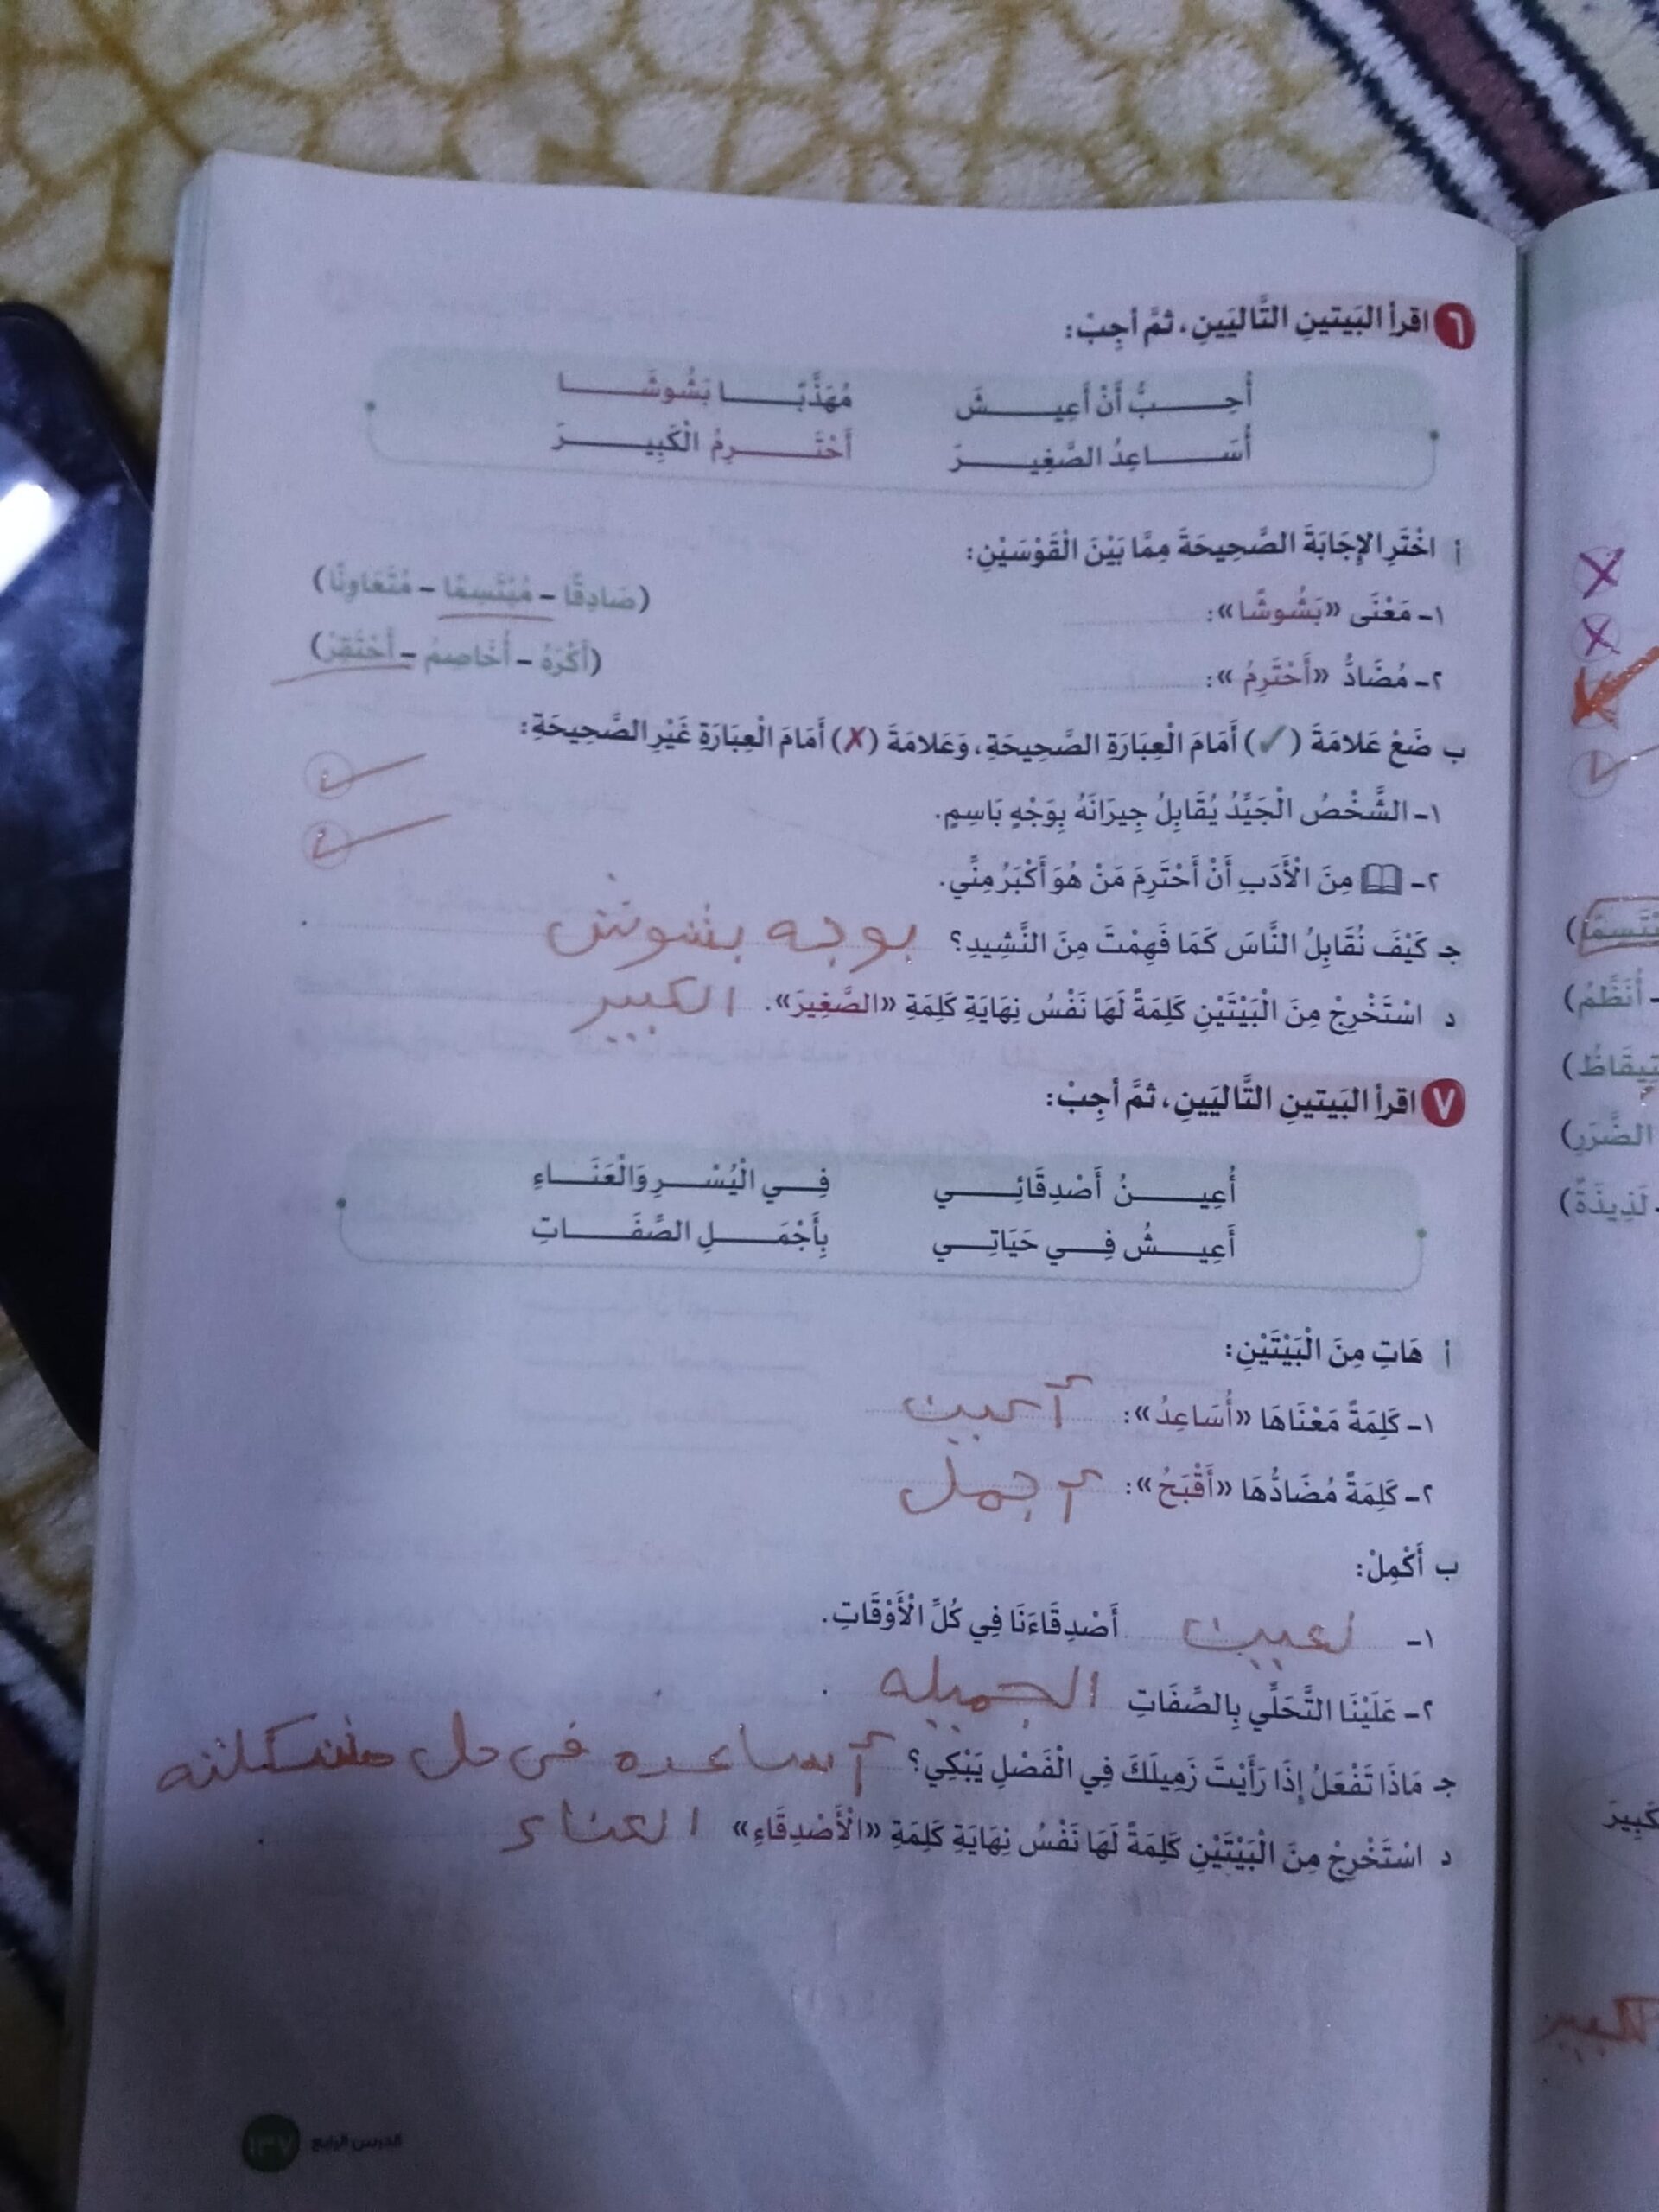 ٦ اقرأ البَيتينِ التَّاليَينِ، ثمَّ أجِبْ:
أُحِـــبُّ أَنْ أَعِيـــشَ مُهَذَّبًـــا بَشُوشَـــا
أُسَـــاعِدُ الصَّغِيـــرَ أَحْتَـــرِمُ الْكَبِيـــرَ
أ اخْتَرِ الإِجَابَةَ الصَّحِيحَةَ مِمَّا بَيْنَ الْقَوْسَيْنِ:
١- مَعْنَى «بَشُوشًا»: (صَادِقًا - مُبْتَسِمًا - مُتَعَاوِنًا)
٢- مُضَادُّ «أَحْتَرِمُ»: (أَكْرَهُ - أُخَاصِمُ - أَحْتَقِرُ)
ب ضَعْ عَلامَةَ (✓) أَمَامَ الْعِبَارَةِ الصَّحِيحَةِ، وَعَلامَةَ (✗) أَمَامَ الْعِبَارَةِ غَيْرِ الصَّحِيحَةِ:
١- الشَّخْصُ الْجَيِّدُ يُقَابِلُ جِيرَانَهُ بِوَجْهٍ بَاسِمٍ. ✓
٢- مِنَ الْأَدَبِ أَنْ أَحْتَرِمَ مَنْ هُوَ أَكْبَرُ مِنِّي. ✓
جـ كَيْفَ نُقَابِلُ النَّاسَ كَمَا فَهِمْتَ مِنَ النَّشِيدِ؟ بوجه بشوش
د اسْتَخْرِجْ مِنَ الْبَيْتَيْنِ كَلِمَةً لَهَا نَفْسُ نِهَايَةِ كَلِمَةِ «الصَّغِيرَ». الكبير
٧ اقرأ البَيتينِ التَّاليَينِ، ثمَّ أجِبْ:
أُعِيـــنُ أَصْدِقَائِـــي فِـــي الْيُسْـــرِ وَالْعَنَـــاءِ
أَعِيـــشُ فِـــي حَيَاتِـــي بِأَجْمَـــلِ الصِّفَـــاتِ
أ هَاتِ مِنَ الْبَيْتَيْنِ:
١- كَلِمَةً مَعْنَاهَا «أُسَاعِدُ»: أعين
٢- كَلِمَةً مُضَادُّهَا «أَقْبَحُ»: أجمل
ب أَكْمِلْ:
١- نعين أَصْدِقَاءَنَا فِي كُلِّ الْأَوْقَاتِ.
٢- عَلَيْنَا التَّحَلِّي بِالصِّفَاتِ الجميله .
جـ مَاذَا تَفْعَلُ إِذَا رَأَيْتَ زَمِيلَكَ فِي الْفَصْلِ يَبْكِي؟ أساعده فى حل مشكلته
د اسْتَخْرِجْ مِنَ الْبَيْتَيْنِ كَلِمَةً لَهَا نَفْسُ نِهَايَةِ كَلِمَةِ «الْأَصْدِقَاءِ» العناء .
الدرس الرابع ١٣٧
أُنَظِّمُ)
الضَّرَرِ)
لَذِيذَةً)